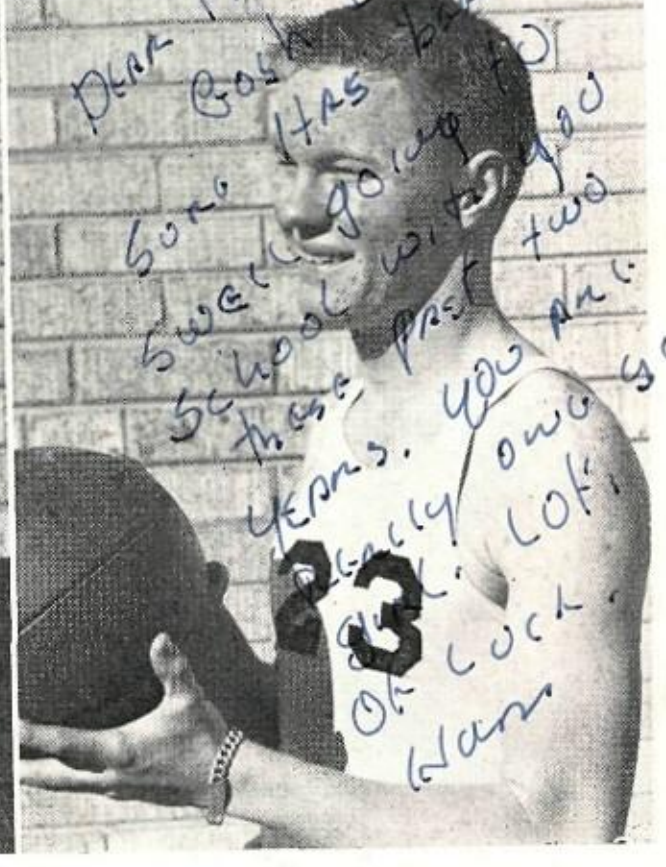 DEAR
Gosh
Sure HAS bee
swell going to
school with you
these past two
years. You are
really one go
girl. Lots
of luck.
23